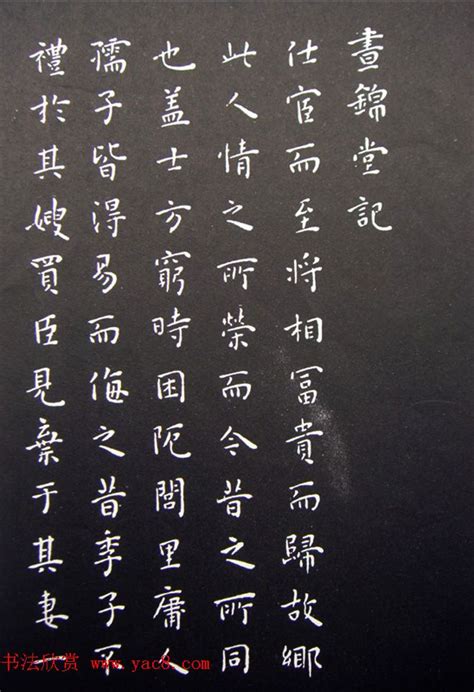 晝錦堂記
仕宦而至将相冨貴而歸故鄉
此人情之所榮而今昔之所同
也盖士方窮時困阨閭里庸人
孺子皆得易而侮之昔季子不
禮於其嫂買臣見棄于其妻一
书法欣赏 www.yac8.com